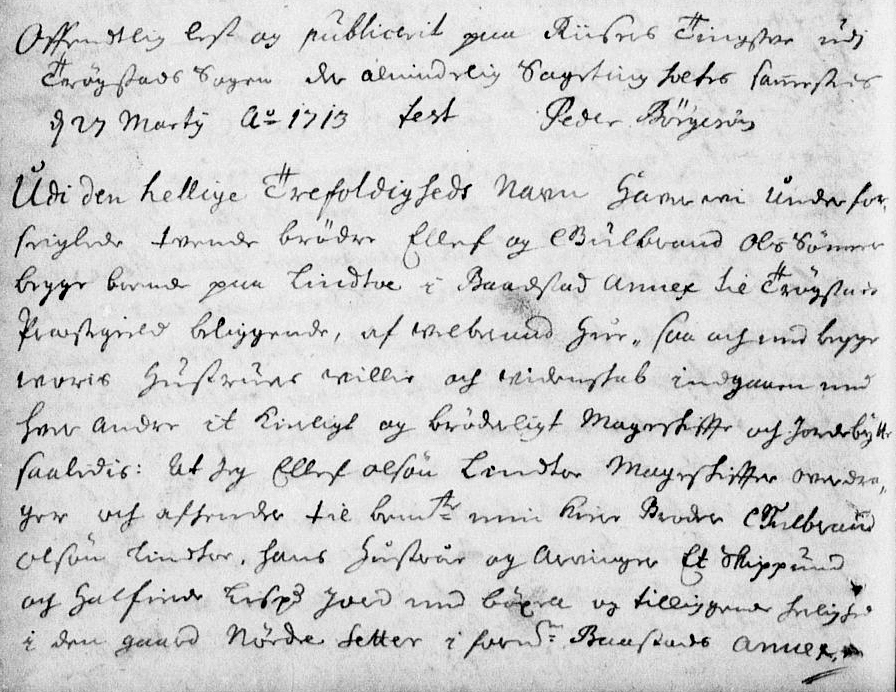 Offendtlig lest og publicerit paa Riisers Tingstue udj
Trøgstads Sogen der almindelig Sageting holtes sammestedes
d 27 Martij Ao 1713 test Peder Börgesön
Udi den hellige Trefoldigheds Nafn Hafuer wi under for
seiglede tvende brödre Ellef og Gulbrand Ols Sönner
begge boende paa Lindtoe i Baadstad Annex til Trögstads
Præstegield beliggende, af velberaad Hue, saa och med begge
woris Hustruers villie och videnskab indgaaen med
hver andre it Kierligt og bröderligt Mageskiffte och Jordebÿtte
saaledis: At Jeg Ellef olsön Lindtoe Mageskiffter overdra,
ger och afhender til bemte min kiere Broder Gulbrand
olsön Lindtoe, hans Hustrue og Arvinger Et Skippund
och Halfinde Lispd Jord med böxel og tilliggende herlighed
i den gaard Nörde Setter i forne Baastads Annex,